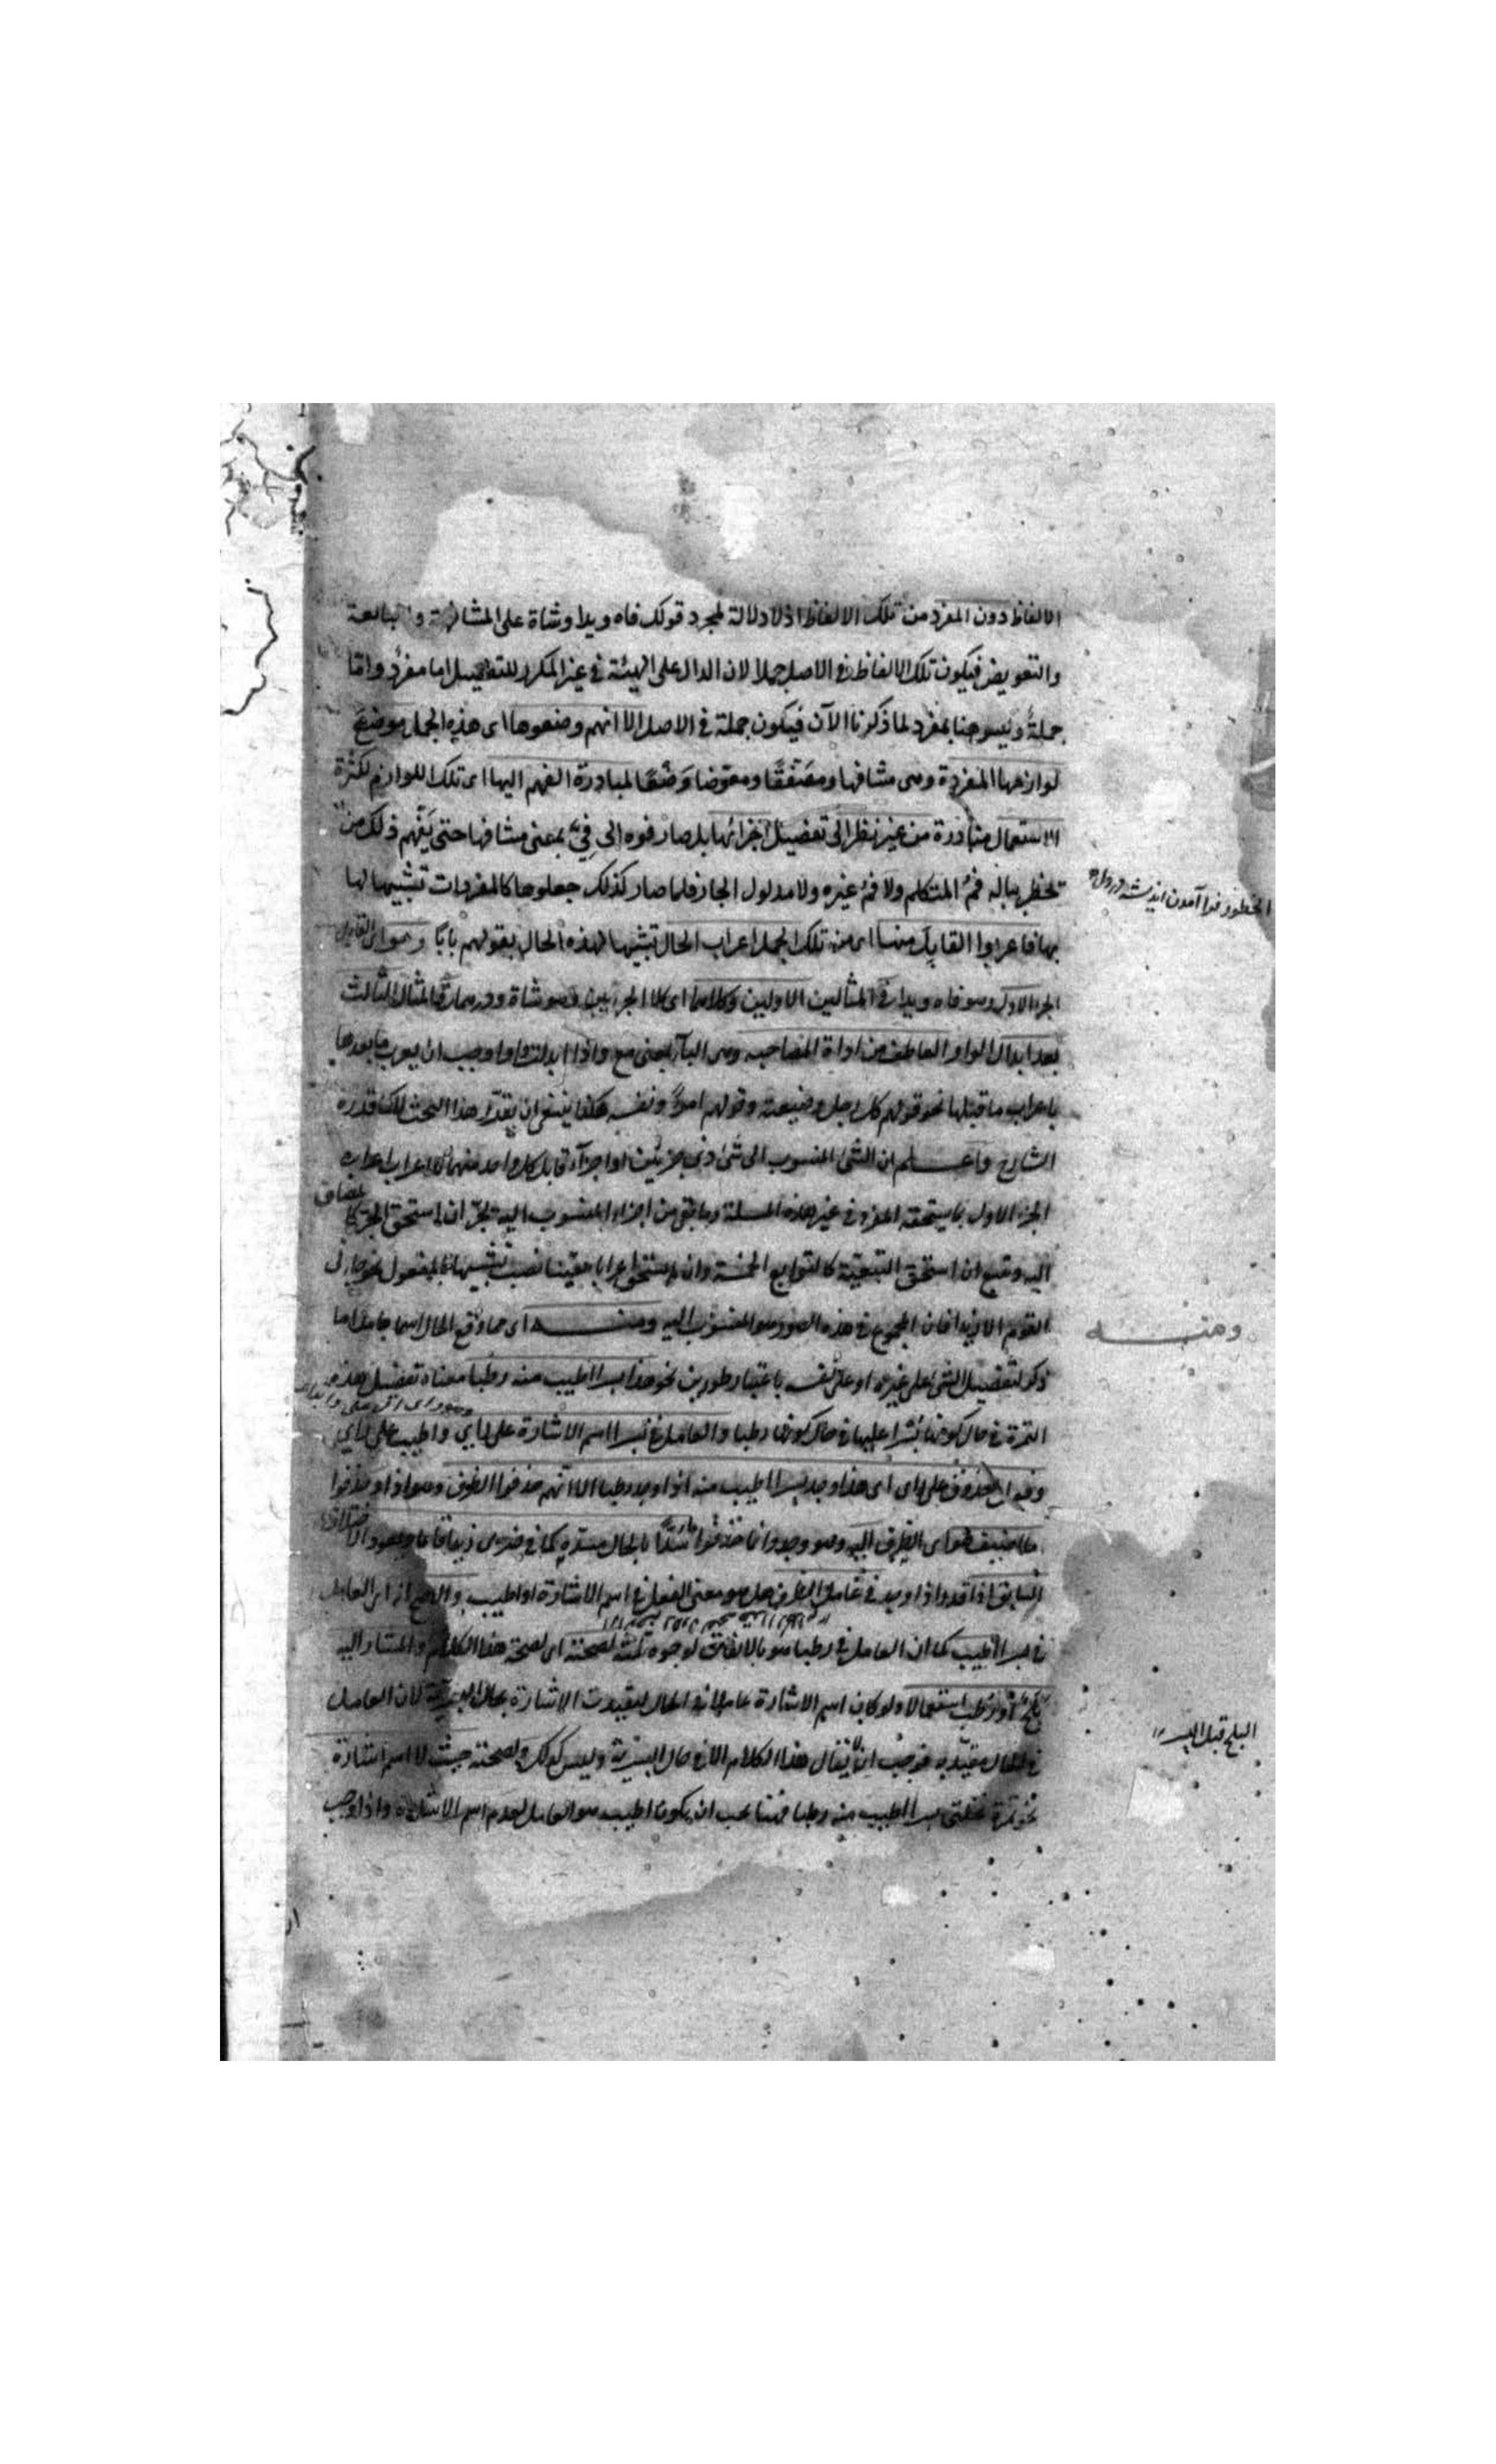 الالفاظ دون المفرد من تلك الالفاظ اذ لا دلالة لمجرد قولك فاه ويدا وشاة على المشافهة
والتعويض فيكون تلك الالفاظ في الاصل جملا لان الدال على الهيئة في غير المكرر للتفصيل اما مفرد واما
جملة وليس هنا بمفرد لما ذكرنا الآن فيكون جملة في الاصل الا انهم وضعوها اى هذه الجمل موضع
لوازمها المفردة وهى مشافها ومعوضا وضعا لمبادرة الفهم اليها اى تلك اللوازم لكثرة
الاستعمال مبادرة من غير نظر الى تفصيل اجزائها بل صار فوه الى فيّ بمعنى مشافها حتى يفهم ذلك من
لم يخطر بباله فم المتكلم ولا فم غيره ولا مدلول الجار فلما صار كذلك جعلوها كالمفردات تشبيها لها
بها فاعربوا القابل منها اى من تلك الجمل اعراب الحال تشبيها لهذه الحال بقولهم بابا وهو اى القابل
الجزء الاول وهو فاه ويدا في المثالين الاولين وكلاهما اى كلا الجزءين وهو شاة ودرهما في المثال الثالث
بعد ابدال الواو العاطفة من اداة المصاحبة وهى الباء بمعنى مع واذا ابدلت واوا وجب ان يعرب ما بعدها
باعراب ما قبلها نحو قولهم كل رجل وضيعته وقولهم امرأ ونفسه هكذا ينبغى ان يقدر هذا البحث
الشارح واعلم ان الشئ المنسوب الى شئ ذى جزئين او اجزاء قابل كل واحد منهما للاعراب اعرابه
الجزء الاول بما يستحقه المفرد في غير هذه المسئلة وما بقى من اجزاء المنسوب اليه يجر ان استحق الجر كالمضاف
اليه ويتبع ان استحق التبعية كالتوابع الخمسة وان لم يستحق اعرابا معينا نصب تشبيها بالمفعول نحو جاءنى
القوم الا زيدا فان المجموع في هذه الصور هو المنسوب اليه ومنه اى مما وقع الحال اسما جامدا ما
ذكر لتفضيل الشئ على غيره او على نفسه باعتبار طورين نحو هذا بسرا اطيب منه رطبا معناه تفضيل هذه
التمرة في حال كونها بسرا عليها في حال كونها رطبا والعامل في بسرا اسم الاشارة على راى واطيب على راى
المحذوف على راى اى هذا وجد بسرا اطيب منه اذا وجد رطبا الا انهم حذفوا الظرف وهو اذا وحذفوا
ما اضيف هو اى الظرف اليه وهو وجد وانما حذفوا سدا بالحال مسده كما في ضربى زيدا قائما
السابق اذا قدروا اذا وجد في عامل الظرف هل هو معنى الفعل في اسم الاشارة او اطيب والاصح انه اى العامل
في بسرا اطيب كما ان العامل في رطبا هو بالاتفاق لوجوه ثلثة لصحته اى لصحة هذا الكلام والمشار اليه
بلح او رطب استعمالا ولو كان اسم الاشارة عاملا في الحال لتقيدت الاشارة بحال البسرية لان العامل
في الحال مقيد به فوجب ان لا يقال هذا الكلام الا في حال البسرية وليس كذلك ولصحته حيث لا اسم اشارة
نحو تمرة نخلتى بسرا اطيب منه رطبا فهنا يجب ان يكون اطيب هو العامل لعدم اسم الاشارة واذا وجب
ومنه
البلح قبل البسر